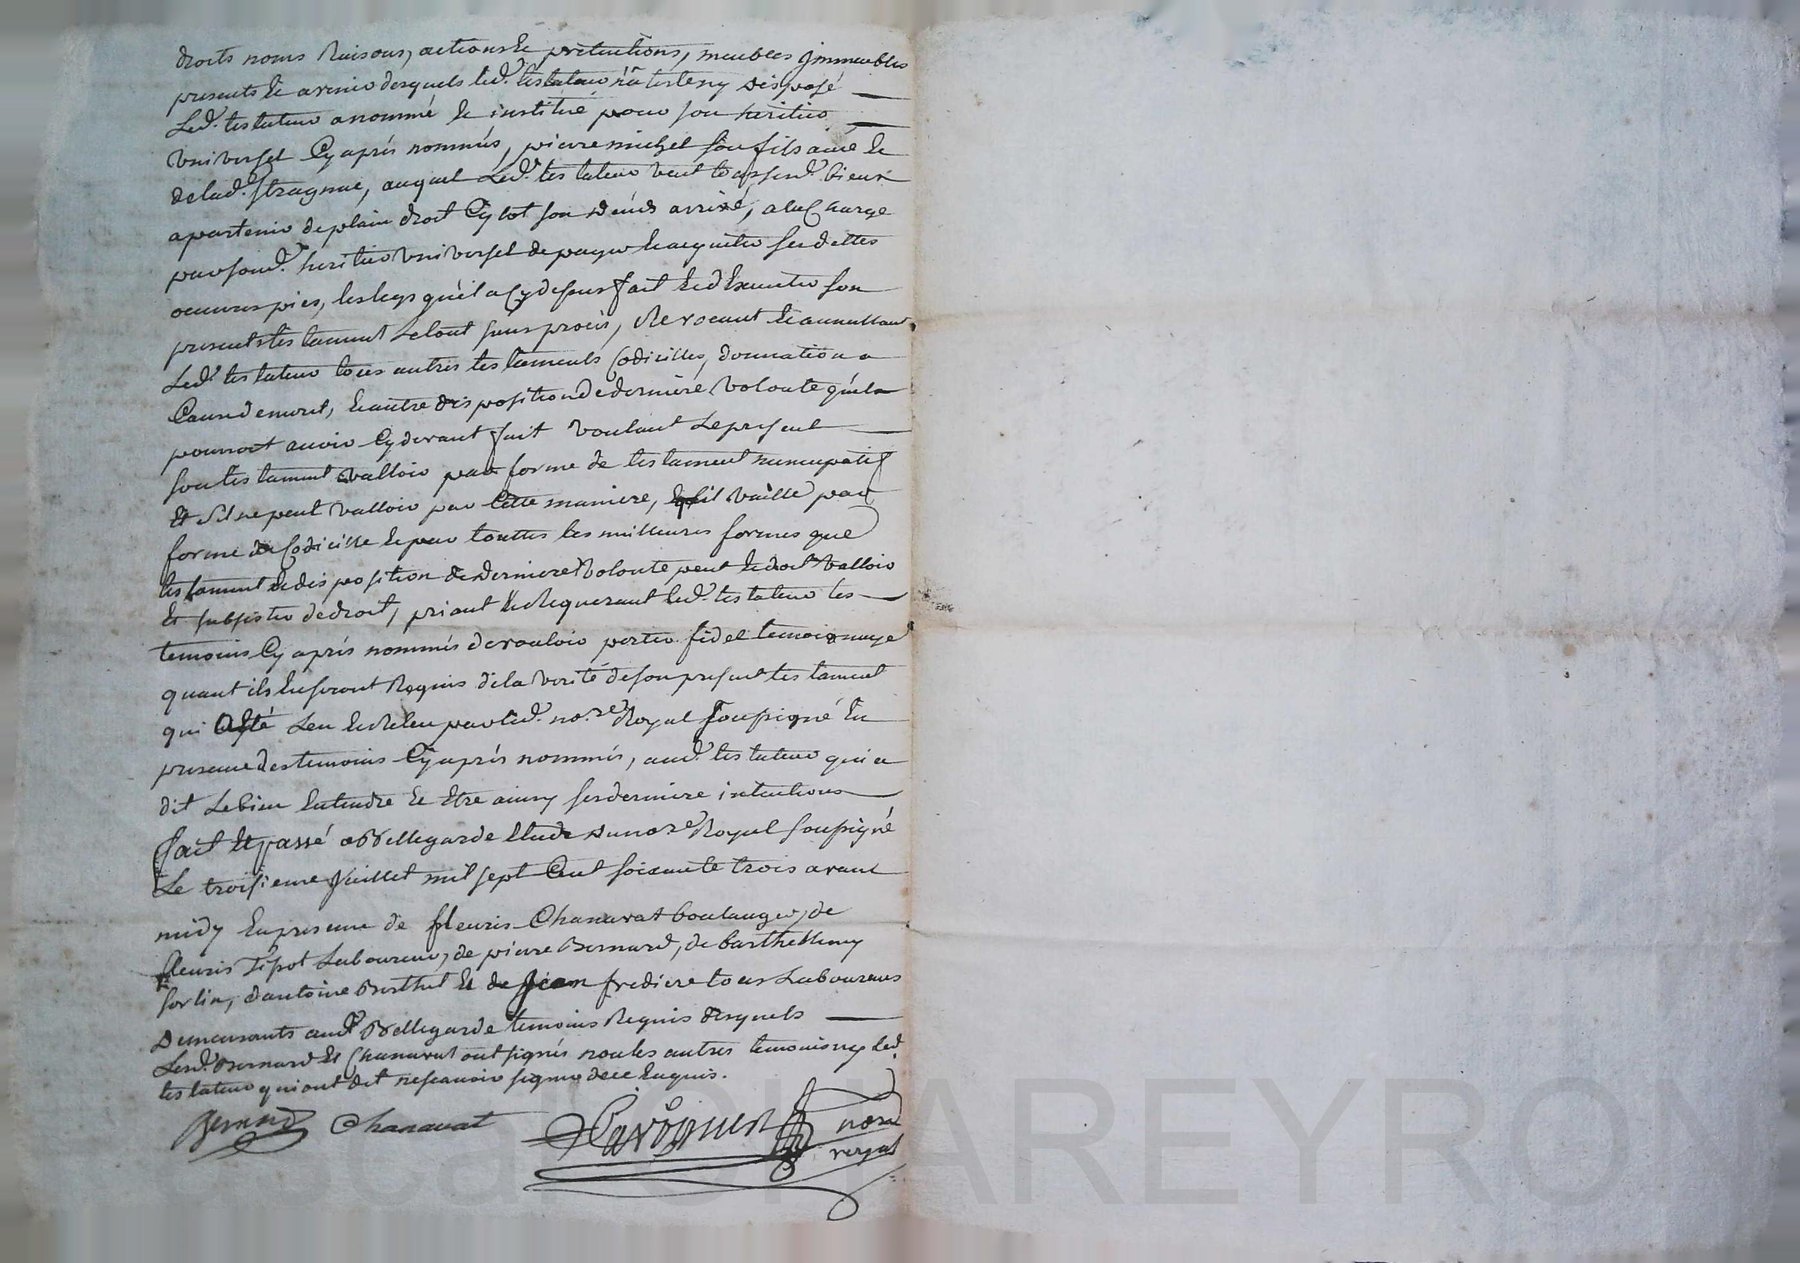 droits noms Raisons, actions Et prétentions, meubles jmmeubles
presents Et avenir desquels led.t testateur n'a testeny disposé
Led.t testateur a nommé Et institué pour son heritier
Vniversel Cy aprés nommés, pierre michel son fils ainé Et
de lad.e auquel Led.t testateur veut tous sesd.t biens
apartenir de plain droit Cytot son déids arrivé, a la Charge
par soud.t heritier Vniversel de payer Et acquitter ses dettes
oeuvres pies, les legs qu'il a Cy dessus fait Et d'Executer son
present testament Le tout sans procés, Revocant Et annullant
Led.t testateur tous autres testaments Codicilles, donnation a
Cause de mort, Et autre disposition de derniere Volonté qu'il a
pourroit avoir Cy devant fait Voulant Le present
son testament valloir par forme de testament nuncupatif
Et s'il ne peut valloir par Cette maniere, qu'il vaille par
forme de Codicille Et par touttes les meilleures formes que
testament Et disposition de derniere Volonté peut Et doit valloir
Et subsister de droit, priant Et Requerant Led.t testateur les
temoins Cy aprés nommés de vouloir porter fidel temoignage
quant ils En seront Requis de la verité de son present testament
qui a Esté Leu Et Releu par led.t no.re Royal soussigné En
presence des temoins Cy aprés nommés, aud.t testateur qui a
dit Le bien Entendre Et Etre ainsy ses derniere intentions
fait Et passé a Bellegarde Etude du no.re Royal soussigné
Le troisieme Juillet mil sept Cent soixante trois avant
midy En presence de fleuris Chanavat boulanger, de
fleuris Tipot Laboureur, de pierre Bernard, de barthellemy
sorlin, d'antoine Berthet Et de Jean fredière tous Laboureurs
Demeurants aud.t Bellegarde temoins Requis desquels
Lesd.t Bernard Et Chanavat ont signés non les autres temoins ny led.t
testateur qui ont dit ne scavoir signer de ce Enquis.
Bernard Chanavat no.re
royal